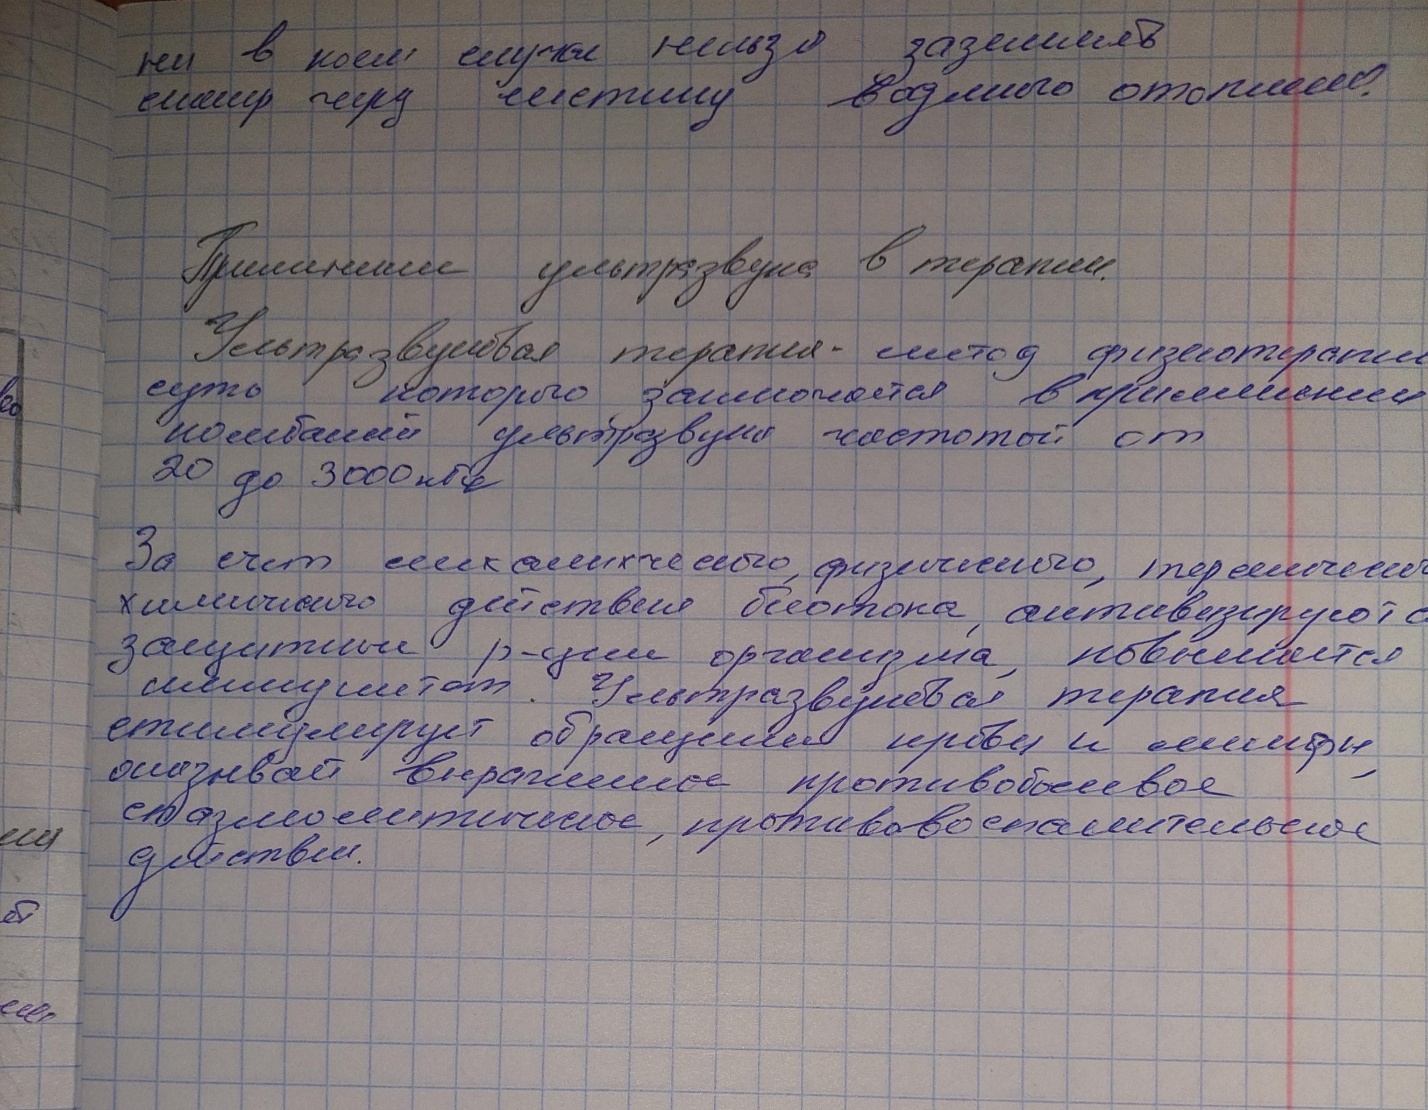 ни в коем случае нельзя заземлять
через систему водяного отопления.
Применение ультразвука в терапии.
Ультразвуковая терапия - метод физиотерапии
суть которого заключается в применении
колебаний ультразвука частотой от
20 до 3000 кГц
За счет механического, физического, термического
химического действия биотока, активизируются
защитные р-ции организма, повышается
иммунитет. Ультразвуковая терапия
стимулирует обращение крови и лимфы,
оказывает выраженное противоболевое
спазмолитическое, противовоспалительное
действие.